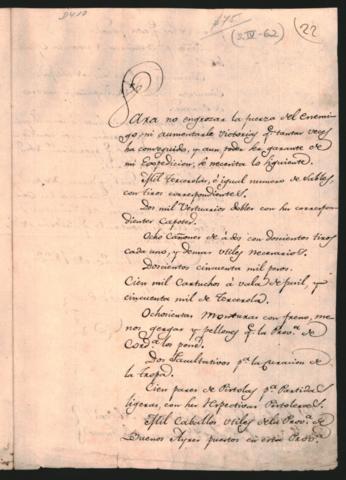 22
(2-IV-62)
Para no engrosar la fuerza del enemi-
go, ni aumentarle victorias q.e tantas veces
ha conseguido, y aun todo ser garante de
mi Expedicion, se necesita lo siguiente.
Mil Tercerolas, é igual numero de Sables,
con tiros correspondientes.
Dos mil Vestuarios dobles con sus correspon-
dientes Capotes.
Ocho Cañones de á dos con doscientos tiros
cada uno, y demas utiles necesarios.
Doscientos cincuenta mil pesos.
Cien mil Cartuchos á vala de fusil, y
cincuenta mil de Tercerola.
Ochocientas Monturas con freno, me-
nos gergas y pellones q.e la Prov.a de
Cord.a los pond.
Dos Facultativos p.a la curacion de
la Tropa.
Cien pares de Pistolas p.a Partidas
ligeras, con sus respectivas Pistoleras.
Mil Caballos utiles de la Prov.a de
Buenos Ayres puestos en esta Prov.a